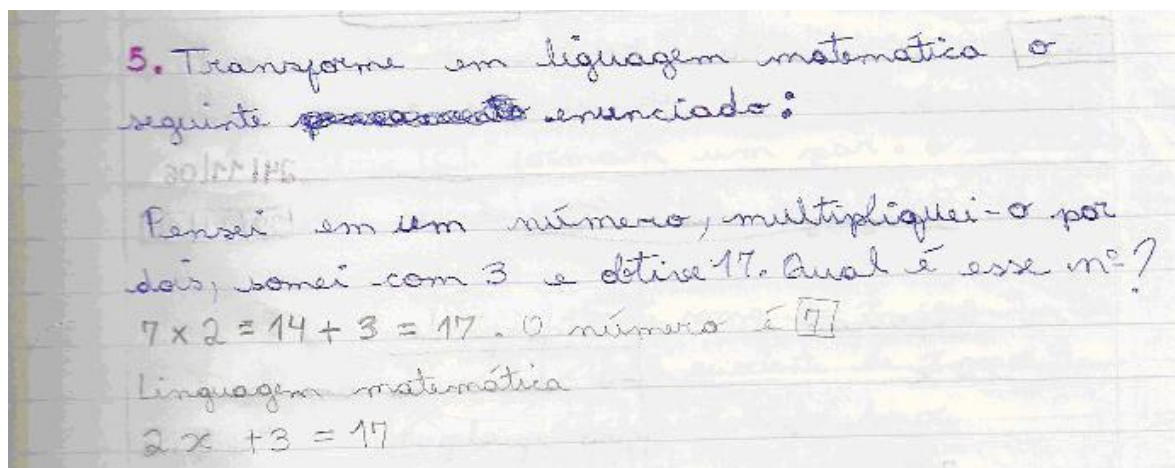 5. Transforme em liguagem matemática o
seguinte enunciado:
Pensei em um número, multipliquei-o por
dois, somei com 3 e obtive 17. Qual é esse nº?
7 x 2 = 14 + 3 = 17. O número é 7
Linguagem matemática
2x + 3 = 17